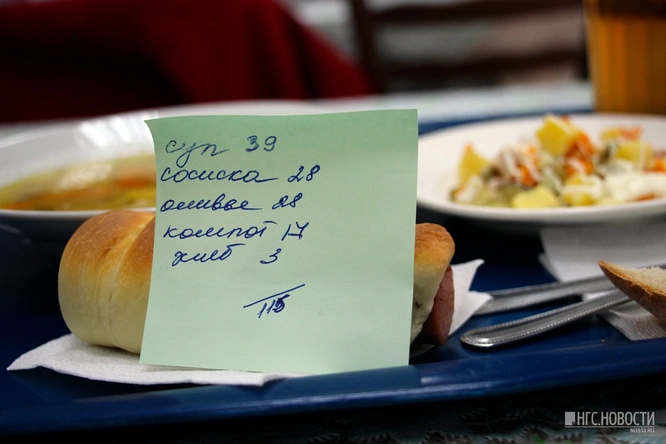 суп 39
сосиска 28
оливье 28
компот 17
хлеб 3
115
НГС.НОВОСТИ